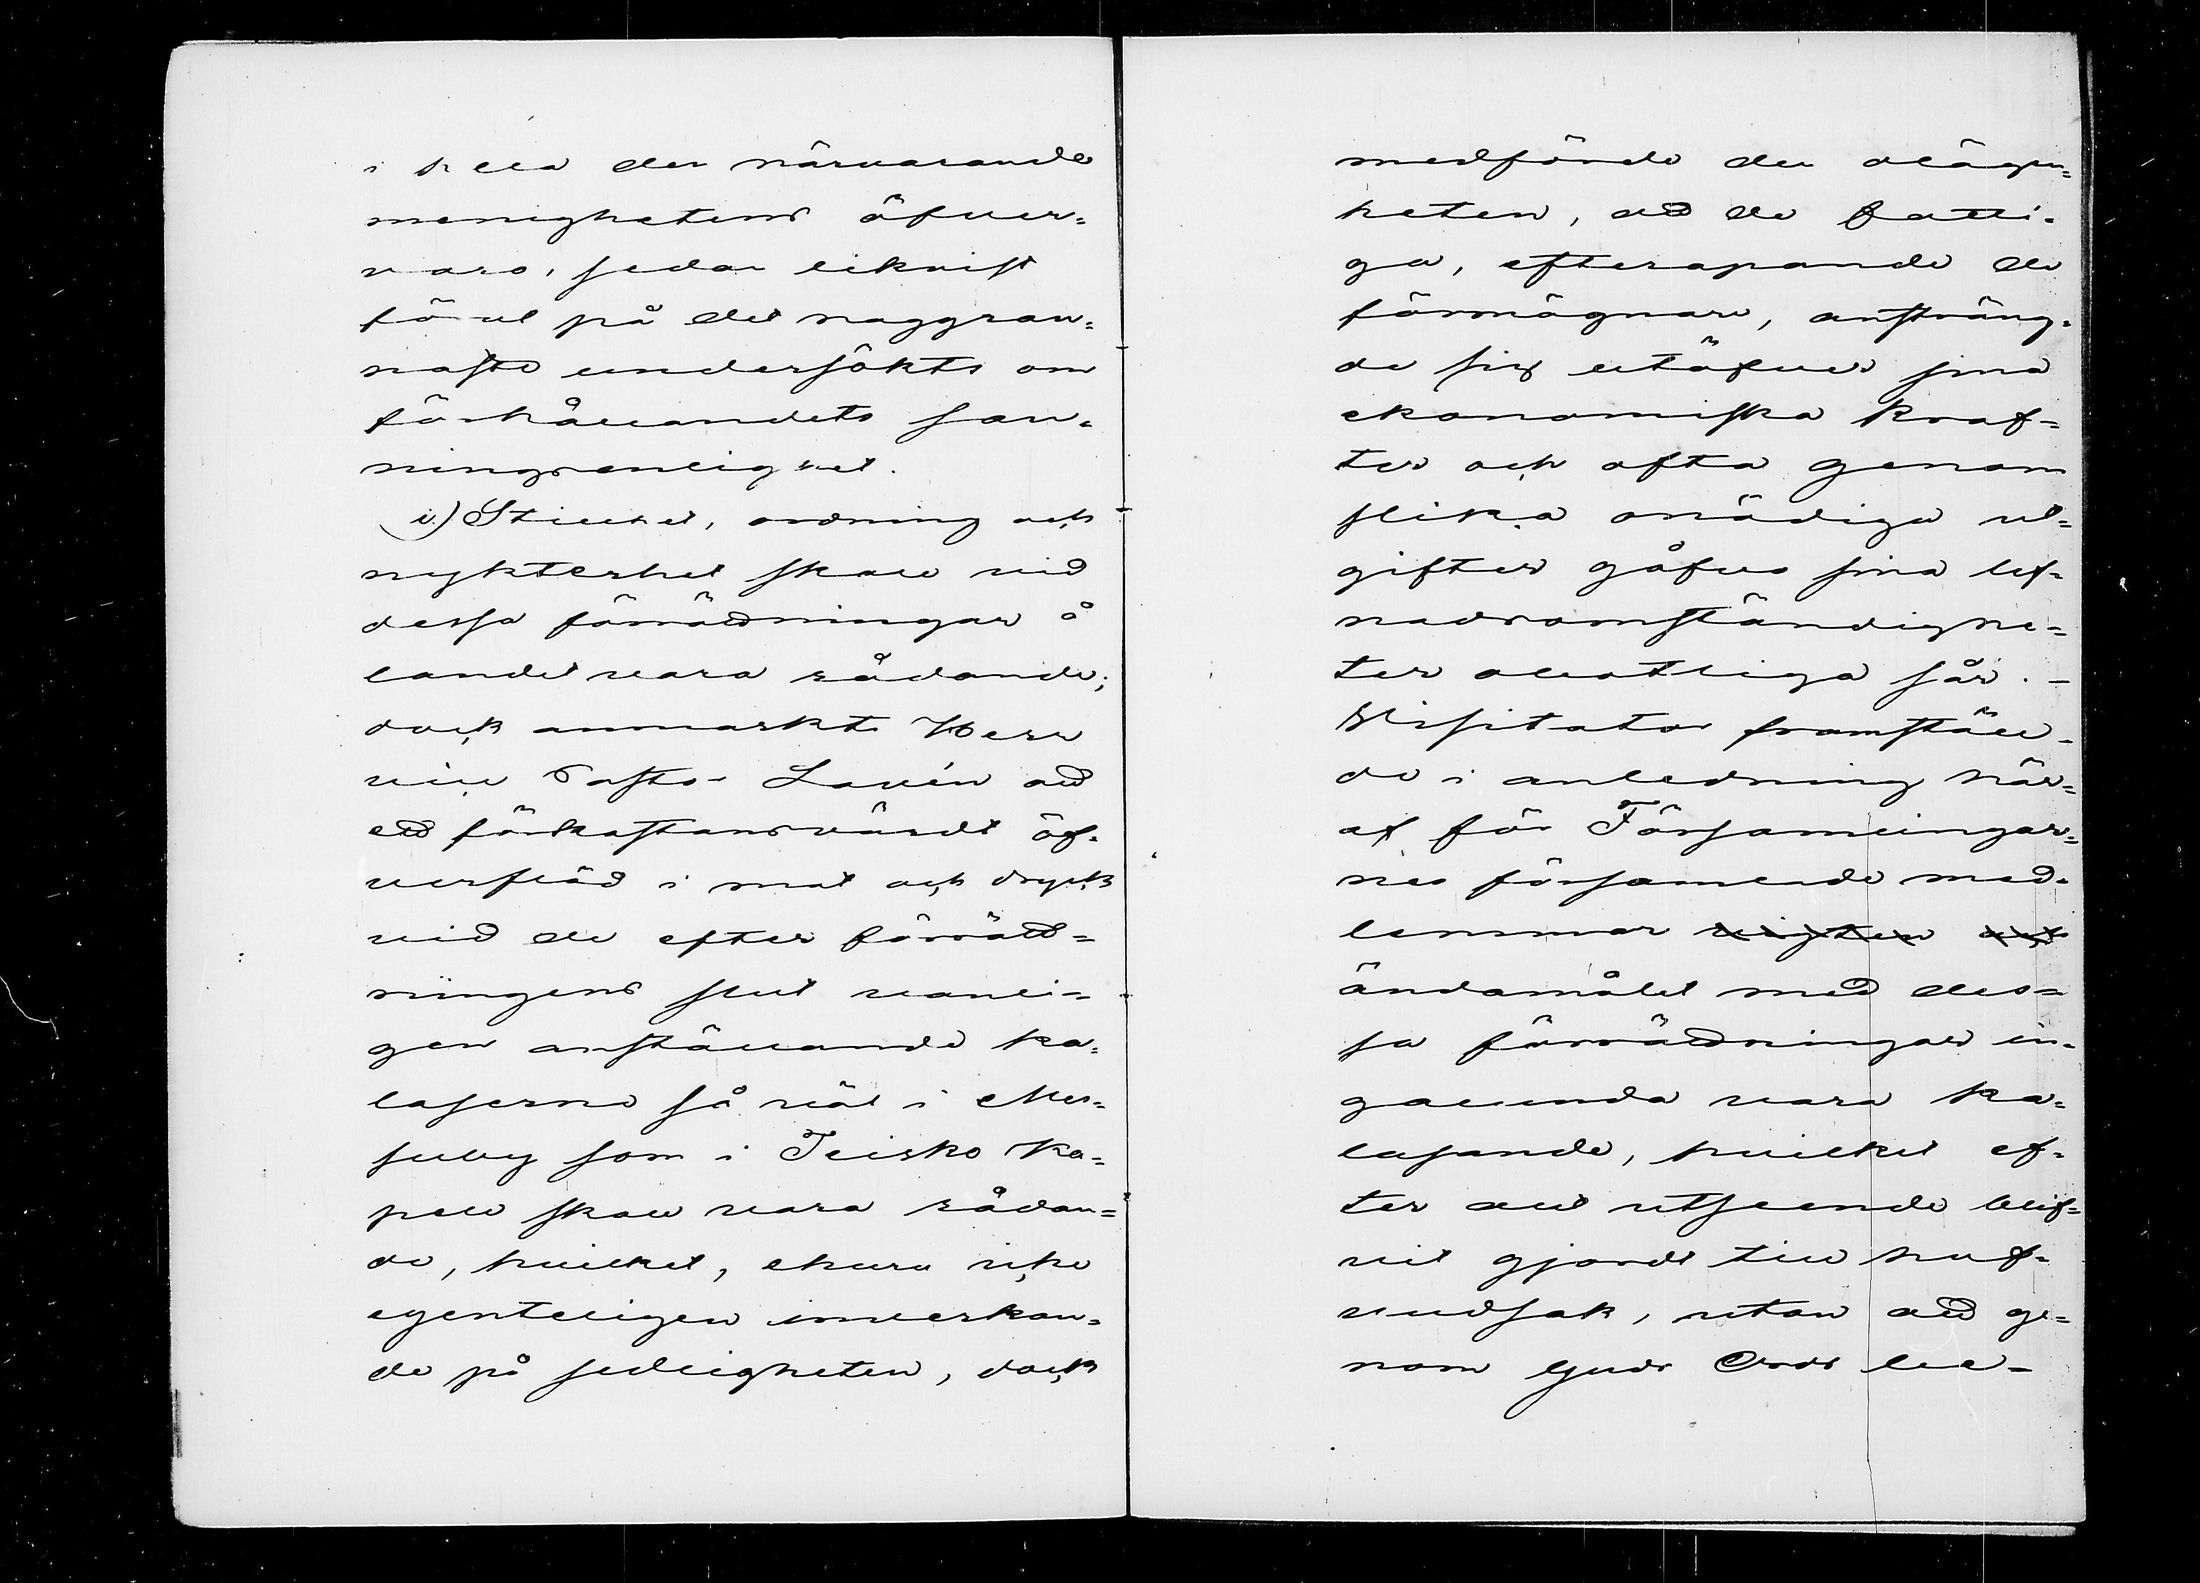 i hela den närvarande
menighetens öfver=
varo, sedan likvist
förut på det naggran=
naste undersökts om
förhållandets san=
ningsenlighet.
i.) Stillhet, ordning och
nykterhet skall vid
dessa förrädningar å
landet vara rådande;
dock anmärkte Herr
vice Pastor Lavén att
ett förkastansvärdt öf=
verflöd i mat och dryck
vid de efter förrätt=
ningens slut vanli=
gen anställande ka=
laserne så väl i Mes=
suby som i Teisko Ka=
pell skall vara rådan=
de, hvilket, ehuru icke
egentligen inverkan=
de på sedligheten, dock
medförde den olägen=
heten, att de fatti=
ga, efterapande de
förmögnare, ansträng=
de sig utöfver sina
ekonomiska kraf=
ter och ofta genom
slika onödiga ut=
gifter gåfvo sina lef=
nadsomständighe=
ter obotliga sår. -
Visitator framstäl=
de i anledning här=
af för Församlingar=
nes församlade med=
lemmar
ändamålet med des=
sa förrädningar in=
galunda vara ka=
lasande, hvilket ef=
ter allt utseende blif=
vit gjordt till huf=
vudsak, utan att ge=
nom Guds Ords lä=